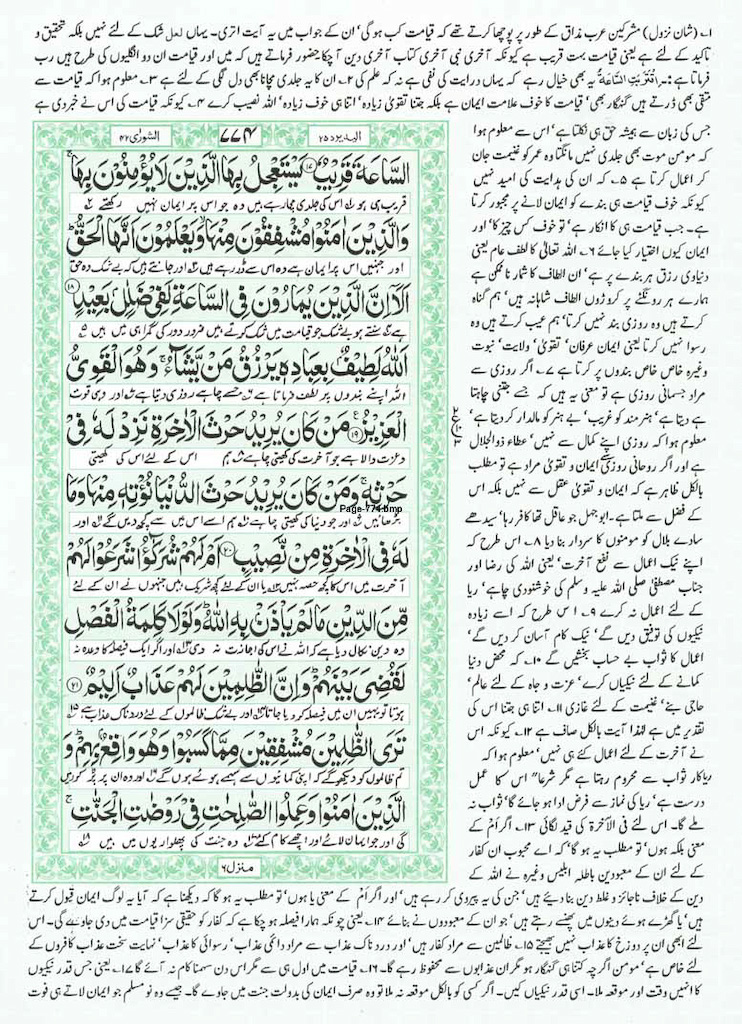 ۱۔ (شان نزول) مشرکین عرب مذاق کے طور پر پوچھا کرتے تھے کہ قیامت کب ہو گی' ان کے جواب میں یہ آیت اتری۔ یہاں لعل شک کے لئے نہیں بلکہ تحقیق و
تاکید کے لئے ہے یعنی قیامت بہت قریب ہے کیونکہ آخری نبی آخری کتاب آخری دین آ چکا حضور فرماتے ہیں کہ میں اور قیامت ان دو انگلیوں کی طرح ہیں رب
فرماتا ہے:۔ اقتربت الساعة یہ بھی خیال رہے کہ یہاں درایت کی نفی ہے نہ کہ علم کی ۲۔ ان کا یہ جلدی مچانا بھی دل لگی کے لئے ہے ۳۔ معلوم ہوا کہ قیامت سے
متقی بھی ڈرتے ہیں گنہگار بھی' قیامت کا خوف علامت ایمان ہے بلکہ جتنا تقویٰ زیادہ' اتنا ہی خوف زیادہ' اللہ نصیب کرے ۴۔ کیونکہ قیامت کی اس نے خبر دی ہے
جس کی زبان سے ہمیشہ حق ہی نکلتا ہے' اس سے معلوم ہوا
کہ مومن موت بھی جلدی نہیں مانگتا وہ عمر کو غنیمت جان
کر اعمال کرتا ہے ۵۔ کہ ان کی ہدایت کی امید نہیں
کیونکہ خوف قیامت ہی بندے کو ایمان لانے پر مجبور کرتا
ہے۔ جب قیامت ہی کا انکار ہے' تو خوف کس چیز کا' اور
ایمان کیوں اختیار کیا جائے ۶۔ اللہ تعالیٰ کا لطف عام یعنی
دنیاوی رزق ہر بندے پر ہے' ان الطاف کا شمار ناممکن ہے
ہمارے ہر رونگٹے پر کروڑوں الطاف شاہانہ ہیں' ہم گناہ
کرتے ہیں وہ روزی بند نہیں کرتا' ہم عیب کرتے ہیں وہ
رسوا نہیں کرتا یعنی ایمان عرفان' تقویٰ' ولایت' نبوت
وغیرہ خاص خاص بندوں پر کرتا ہے ۷۔ اگر روزی سے
مراد جسمانی روزی ہے تو معنی یہ ہیں کہ جسے جتنی چاہتا
ہے دیتا ہے' ہنر مند کو غریب' بے ہنر کو مالدار کر دیتا ہے'
معلوم ہوا کہ روزی اپنے کمال سے نہیں' عطاء ذوالجلال
ہے اور اگر روحانی روزی یعنی ایمان و تقویٰ مراد ہے تو مطلب
بالکل ظاہر ہے کہ ایمان و تقویٰ عقل سے نہیں بلکہ اس
کے فضل سے ملتا ہے۔ ابو جہل جو عاقل تھا کافر رہا' سیدھے
سادے بلال کو مومنوں کا سردار بنا دیا ۸۔ اس طرح کہ
اپنے نیک اعمال سے نفع آخرت' یعنی اللہ کی رضا اور
جناب مصطفیٰ صلی اللہ علیہ وسلم کی خوشنودی چاہے' ریا
کے لئے اعمال نہ کرے ۹۔ اس طرح کہ اسے زیادہ
نیکیوں کی توفیق دیں گے' نیک کام آسان کر دیں گے'
اعمال کا ثواب بے حساب بخشیں گے ۱۰۔ کہ محض دنیا
کمانے کے لئے نیکیاں کرے' عزت و جاہ کے لئے عالم'
حاجی بنے' غنیمت کے لئے غازی ۱۱۔ اتنا ہی جتنا اس کی
تقدیر میں ہے لہٰذا آیت بالکل صاف ہے ۱۲۔ کیونکہ اس
نے آخرت کے لئے اعمال کئے ہی نہیں' معلوم ہوا کہ
ریاکار ثواب سے محروم رہتا ہے مگر شرعاً اس کا عمل
درست ہے' ریا کی نماز سے فرض ادا ہو جائے گا' ثواب نہ
ملے گا۔ اس لئے فی الآخرة کی قید لگائی ۱۳۔ اگر ام کے
معنی بلکہ ہوں' تو مطلب یہ ہو گا' کہ اے محبوب ان کفار
کے لئے ان کے معبودین باطلہ ابلیس وغیرہ نے اللہ کے
البہ یرد ۲۵
۷۷۴
الشوریٰ ۴۲
السَّاعَةَ قَرِيْبٌ ۱۷ يَسْتَعْجِلُ بِهَا الَّذِيْنَ لَا يُؤْمِنُوْنَ بِهَا
قریب ہی ہو اس کی جلدی مچا رہے ہیں وہ جو اس پر ایمان نہیں رکھتے
وَالَّذِيْنَ اٰمَنُوْا مُشْفِقُوْنَ مِنْهَا وَيَعْلَمُوْنَ اَنَّهَا الْحَقُّ
اور جنہیں اس پر ایمان ہے وہ اس سے ڈر رہے ہیں اور جانتے ہیں کہ بے شک وہ حق
اَلَآ اِنَّ الَّذِيْنَ يُمَارُوْنَ فِى السَّاعَةِ لَفِىْ ضَلٰلٍ بَعِيْدٍ ۱۸
ہے سنتے ہو بے شک جو قیامت میں شک کرتے ہیں ضرور دور کی گمراہی میں ہیں
اَللّٰهُ لَطِيْفٌ بِعِبَادِهٖ يَرْزُقُ مَنْ يَّشَآءُ وَهُوَ الْقَوِىُّ
اللہ اپنے بندوں پر لطف فرماتا ہے جسے چاہے روزی دیتا ہے اور وہی قوت
الْعَزِيْزُ ۱۹ مَنْ كَانَ يُرِيْدُ حَرْثَ الْاٰخِرَةِ نَزِدْ لَهٗ فِىْ
و عزت والا ہے جو آخرت کی کھیتی چاہے ہم اس کے لئے اس کی کھیتی
حَرْثِهٖ وَمَنْ كَانَ يُرِيْدُ حَرْثَ الدُّنْيَا نُؤْتِهٖ مِنْهَا وَمَا
Page-774.bmp
بڑھائیں اور جو دنیا کی کھیتی چاہے ہم اسے اس میں سے کچھ دیں گے اور
لَهٗ فِى الْاٰخِرَةِ مِنْ نَّصِيْبٍ ۲۰ اَمْ لَهُمْ شُرَكٰٓؤُا شَرَعُوْا لَهُمْ
آخرت میں اس کا کچھ حصہ نہیں یا ان کے لئے کچھ شریک ہیں جنہوں نے ان کے لئے
مِّنَ الدِّيْنِ مَا لَمْ يَاْذَنْ بِهِ اللّٰهُ وَلَوْلَا كَلِمَةُ الْفَصْلِ
وہ دین نکال دیا ہے کہ اللہ نے اس کی اجازت نہ دی اور اگر ایک فیصلہ کا وعدہ نہ
لَقُضِىَ بَيْنَهُمْ وَاِنَّ الظّٰلِمِيْنَ لَهُمْ عَذَابٌ اَلِيْمٌ ۲۱
ہوتا تو یہیں ان میں فیصلہ کر دیا جاتا اور بے شک ظالموں کے لئے دردناک عذاب ہے
تَرَى الظّٰلِمِيْنَ مُشْفِقِيْنَ مِمَّا كَسَبُوْا وَهُوَ وَاقِعٌ بِهِمْ وَ
تم ظالموں کو دیکھو گے کہ اپنی کمائیوں سے سہمے ہوئے ہوں گے اور وہ ان پر پڑ کر رہیں
الَّذِيْنَ اٰمَنُوْا وَعَمِلُوا الصّٰلِحٰتِ فِىْ رَوْضٰتِ الْجَنّٰتِ
گی اور جو ایمان لائے اور اچھے کام کئے وہ جنت کی پھلواریوں میں ہیں
منزل ۶
دین کے خلاف ناجائز و غلط دین بنا دیئے ہیں' جن کی یہ پیروی کر رہے ہیں' اور اگر ام کے معنی یا ہوں' تو مطلب یہ ہو گا کہ دیکھنا ہے کہ آیا یہ لوگ ایمان قبول کرتے
ہیں' یا گھڑے ہوئے دینوں میں پھنسے رہتے ہیں' جو ان کے معبودوں نے بنائے ۱۴۔ یعنی چونکہ ہمارا فیصلہ ہو چکا ہے کہ کفار کو حقیقی سزا قیامت میں دی جاوے گی۔ اس
لئے ابھی ان پر دوزخ کا عذاب نہیں بھیجتے ۱۵۔ ظالمین سے مراد کفار ہیں' اور دردناک عذاب سے مراد دائمی عذاب' رسوائی کا عذاب' نہایت سخت عذاب کافروں کے
لئے خاص ہے' مومن اگرچہ کتنا ہی گنہگار ہو مگر ان عذابوں سے محفوظ رہے گا۔ ۱۶۔ قیامت میں اول ہی سے مگر اس دن سہمنا کام نہ آئے گا ۱۷۔ یعنی جس قدر نیکیوں
کا انہیں وقت اور موقعہ ملا۔ اسی قدر نیکیاں کیں۔ اگر کسی کو بالکل موقعہ نہ ملا تو وہ صرف ایمان کی بدولت جنت میں جاوے گا۔ جیسے وہ نو مسلم جو ایمان لاتے ہی فوت